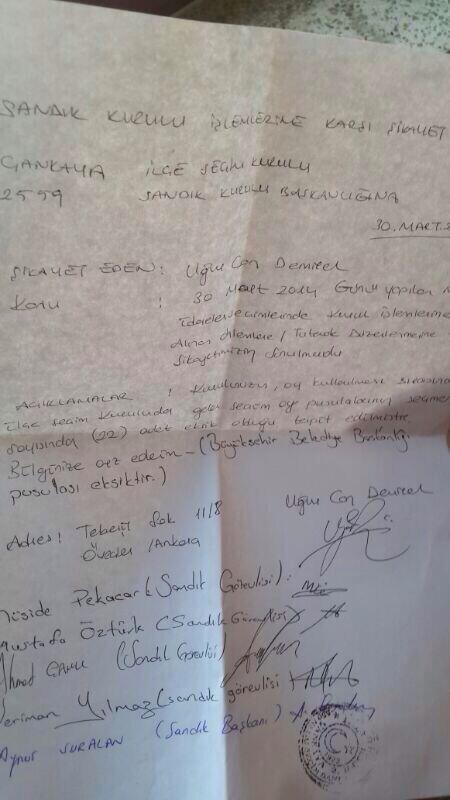 SANDIK KURULU İŞLEMLERİNE KARŞI ŞİKAYET
ÇANKAYA İLÇE SEÇİM KURULU
2559 SANDIK KURULU BAŞKANLIĞINA
30.MART.
ŞİKAYET EDEN: Uğur Can Demirel
KONU : 30 Mart 2014 Günü yapılan
idareler seçimlerinde Kurul işlemlerine
Alınan / Tutanak Düzenlenmesine
Şikayetimizin Sunulmasıdır
AÇIKLAMALAR : Kurulunuzun, oy kullanılması sırasında
ilçe seçim kurulunda gelen seçim oy pusulalarının seçmen
sayısında (22) adet eksik olduğu tespit edilmiştir.
Bilginize arz ederim - (Büyükşehir Belediye Başkanlığı
pusulası eksiktir.)
Uğur Can Demirel
Adres: Tebeşir Sok 11/8
Öveçler / Ankara
Pekacar (Sandık Görevlisi):
Mustafa Öztürk (Sandık Görevlisi)
Ahmet (Sandık Görevlisi)
Neriman Yılmaz (sandık görevlisi
Aynur SURALAN (Sandık Başkanı)